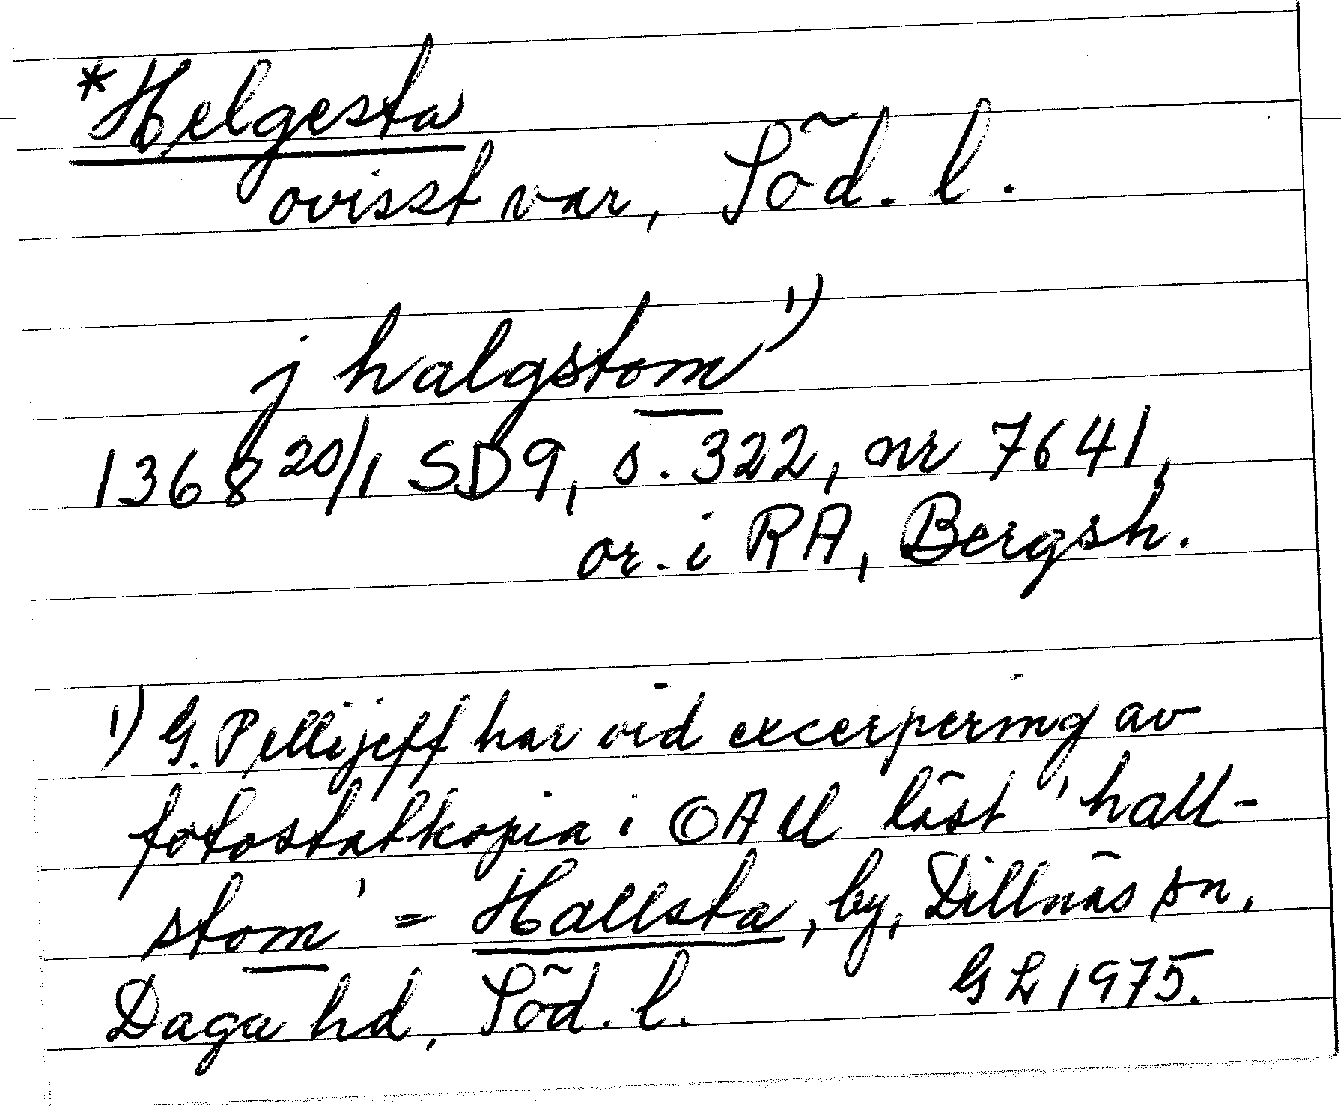 *Helgesta
ovisst var, Söd. l.
j halgstom¹⁾
1368 20/1 SD9, s. 322, nr 7641,
or. i RA, Bergsh.
¹⁾ G. Pellijeff har vid excerpering av
fotostatkopia i OAU läst 'hall-
stom' = Hallsta, by, Dillnäs sn,
Daga hd, Söd. l. GL 1975.